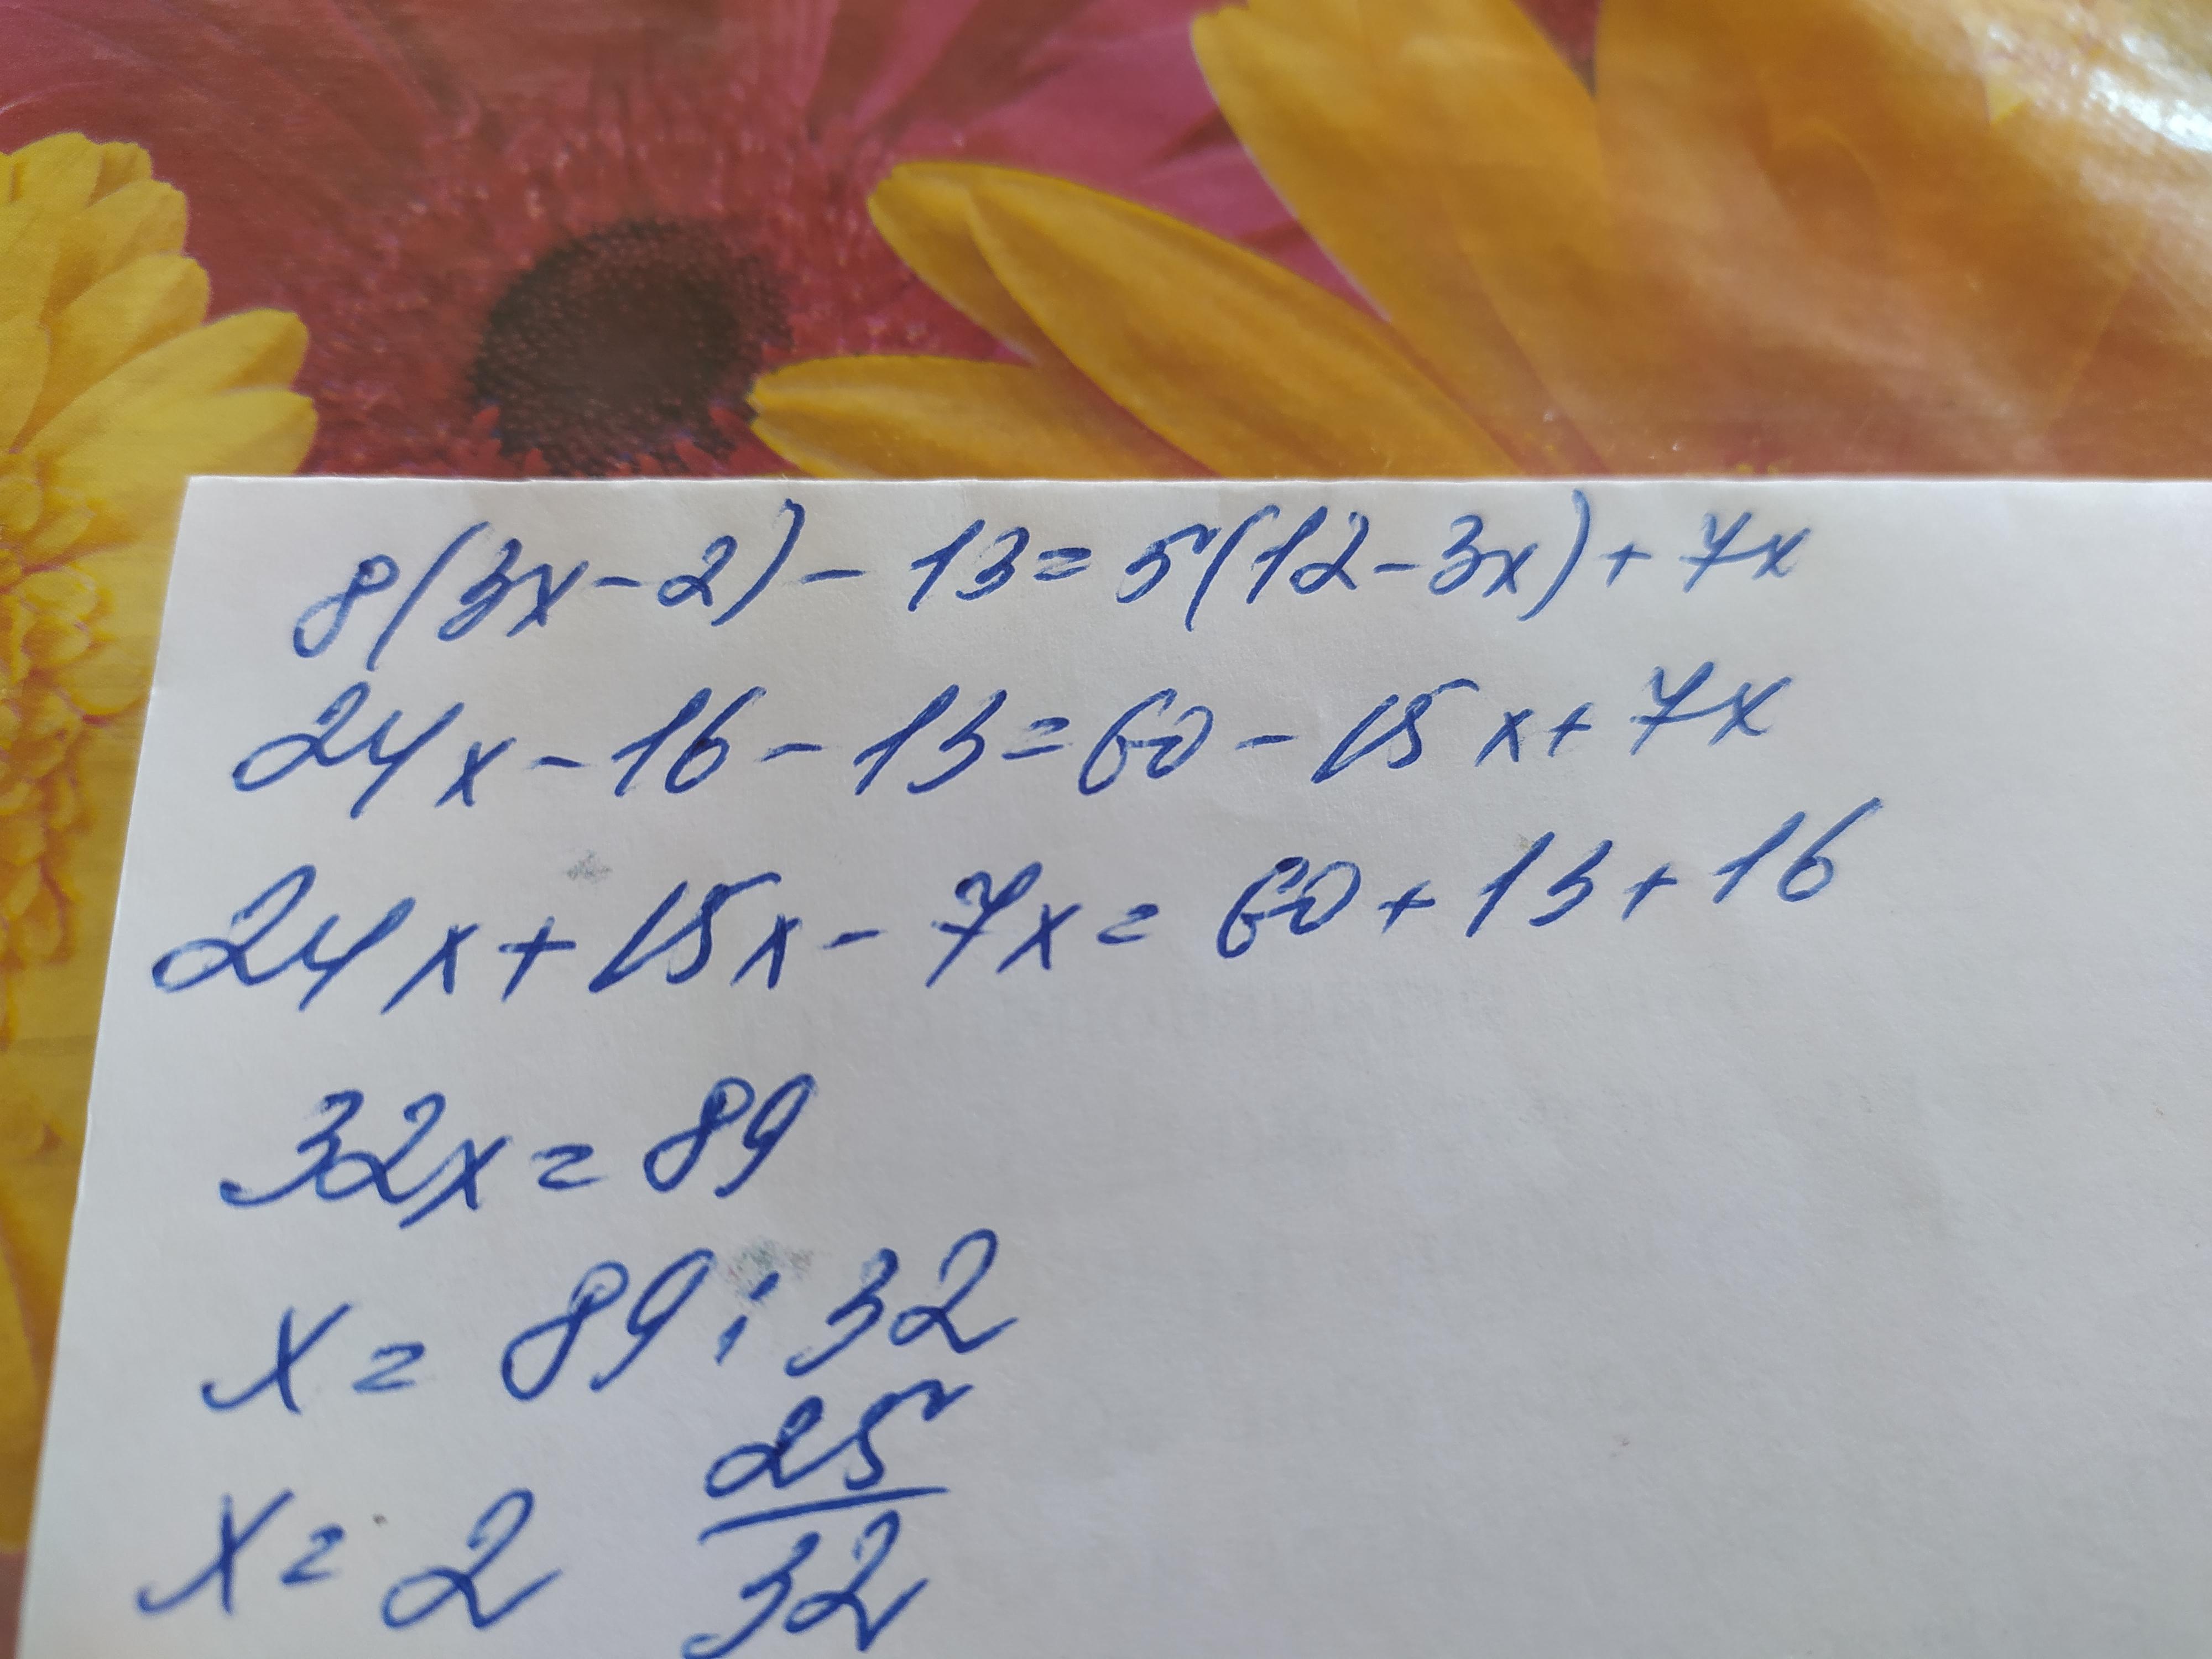 8(3x-2)-13=5(12-3x)+7x
24x-16-13=60-15x+7x
24x+15x-7x=60+13+16
32x=89
x=89:32
x=2 25/32